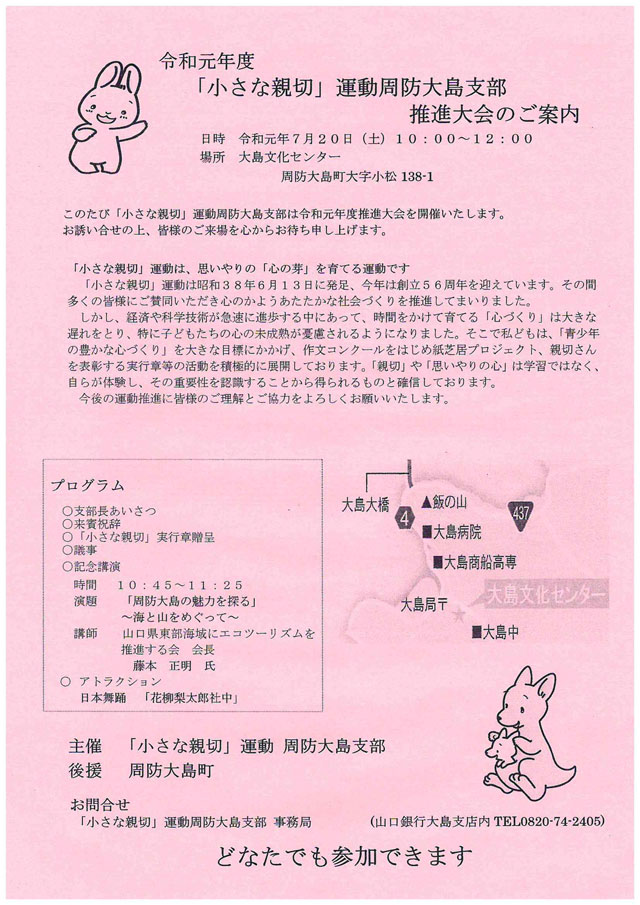 令和元年度
「小さな親切」運動周防大島支部
推進大会のご案内
日時　令和元年７月２０日（土）１０：００～１２：００
場所　大島文化センター
周防大島町大字小松 138-1
このたび「小さな親切」運動周防大島支部は令和元年度推進大会を開催いたします。
お誘い合せの上、皆様のご来場を心からお待ち申し上げます。
「小さな親切」運動は、思いやりの「心の芽」を育てる運動です
「小さな親切」運動は昭和３８年６月１３日に発足、今年は創立５６周年を迎えています。その間
多くの皆様にご賛同いただき心のかようあたたかな社会づくりを推進してまいりました。
しかし、経済や科学技術が急速に進歩する中にあって、時間をかけて育てる「心づくり」は大きな
遅れをとり、特に子どもたちの心の未成熟が憂慮されるようになりました。そこで私どもは、「青少年
の豊かな心づくり」を大きな目標にかかげ、作文コンクールをはじめ紙芝居プロジェクト、親切さん
を表彰する実行章等の活動を積極的に展開しております。「親切」や「思いやりの心」は学習ではなく、
自らが体験し、その重要性を認識することから得られるものと確信しております。
今後の運動推進に皆様のご理解とご協力をよろしくお願いいたします。
プログラム
○支部長あいさつ
○来賓祝辞
○「小さな親切」実行章贈呈
○議事
○記念講演
時間　１０：４５～１１：２５
演題　「周防大島の魅力を探る」
～海と山をめぐって～
講師　山口県東部海域にエコツーリズムを
推進する会　会長
藤本　正明　氏
○ アトラクション
日本舞踊　「花柳梨太郎社中」
大島大橋
4
▲飯の山
437
■大島病院
■大島商船高専
大島局〒
大島文化センター
■大島中
主催　「小さな親切」運動 周防大島支部
後援　周防大島町
お問合せ
「小さな親切」運動周防大島支部 事務局　(山口銀行大島支店内 TEL0820-74-2405)
どなたでも参加できます